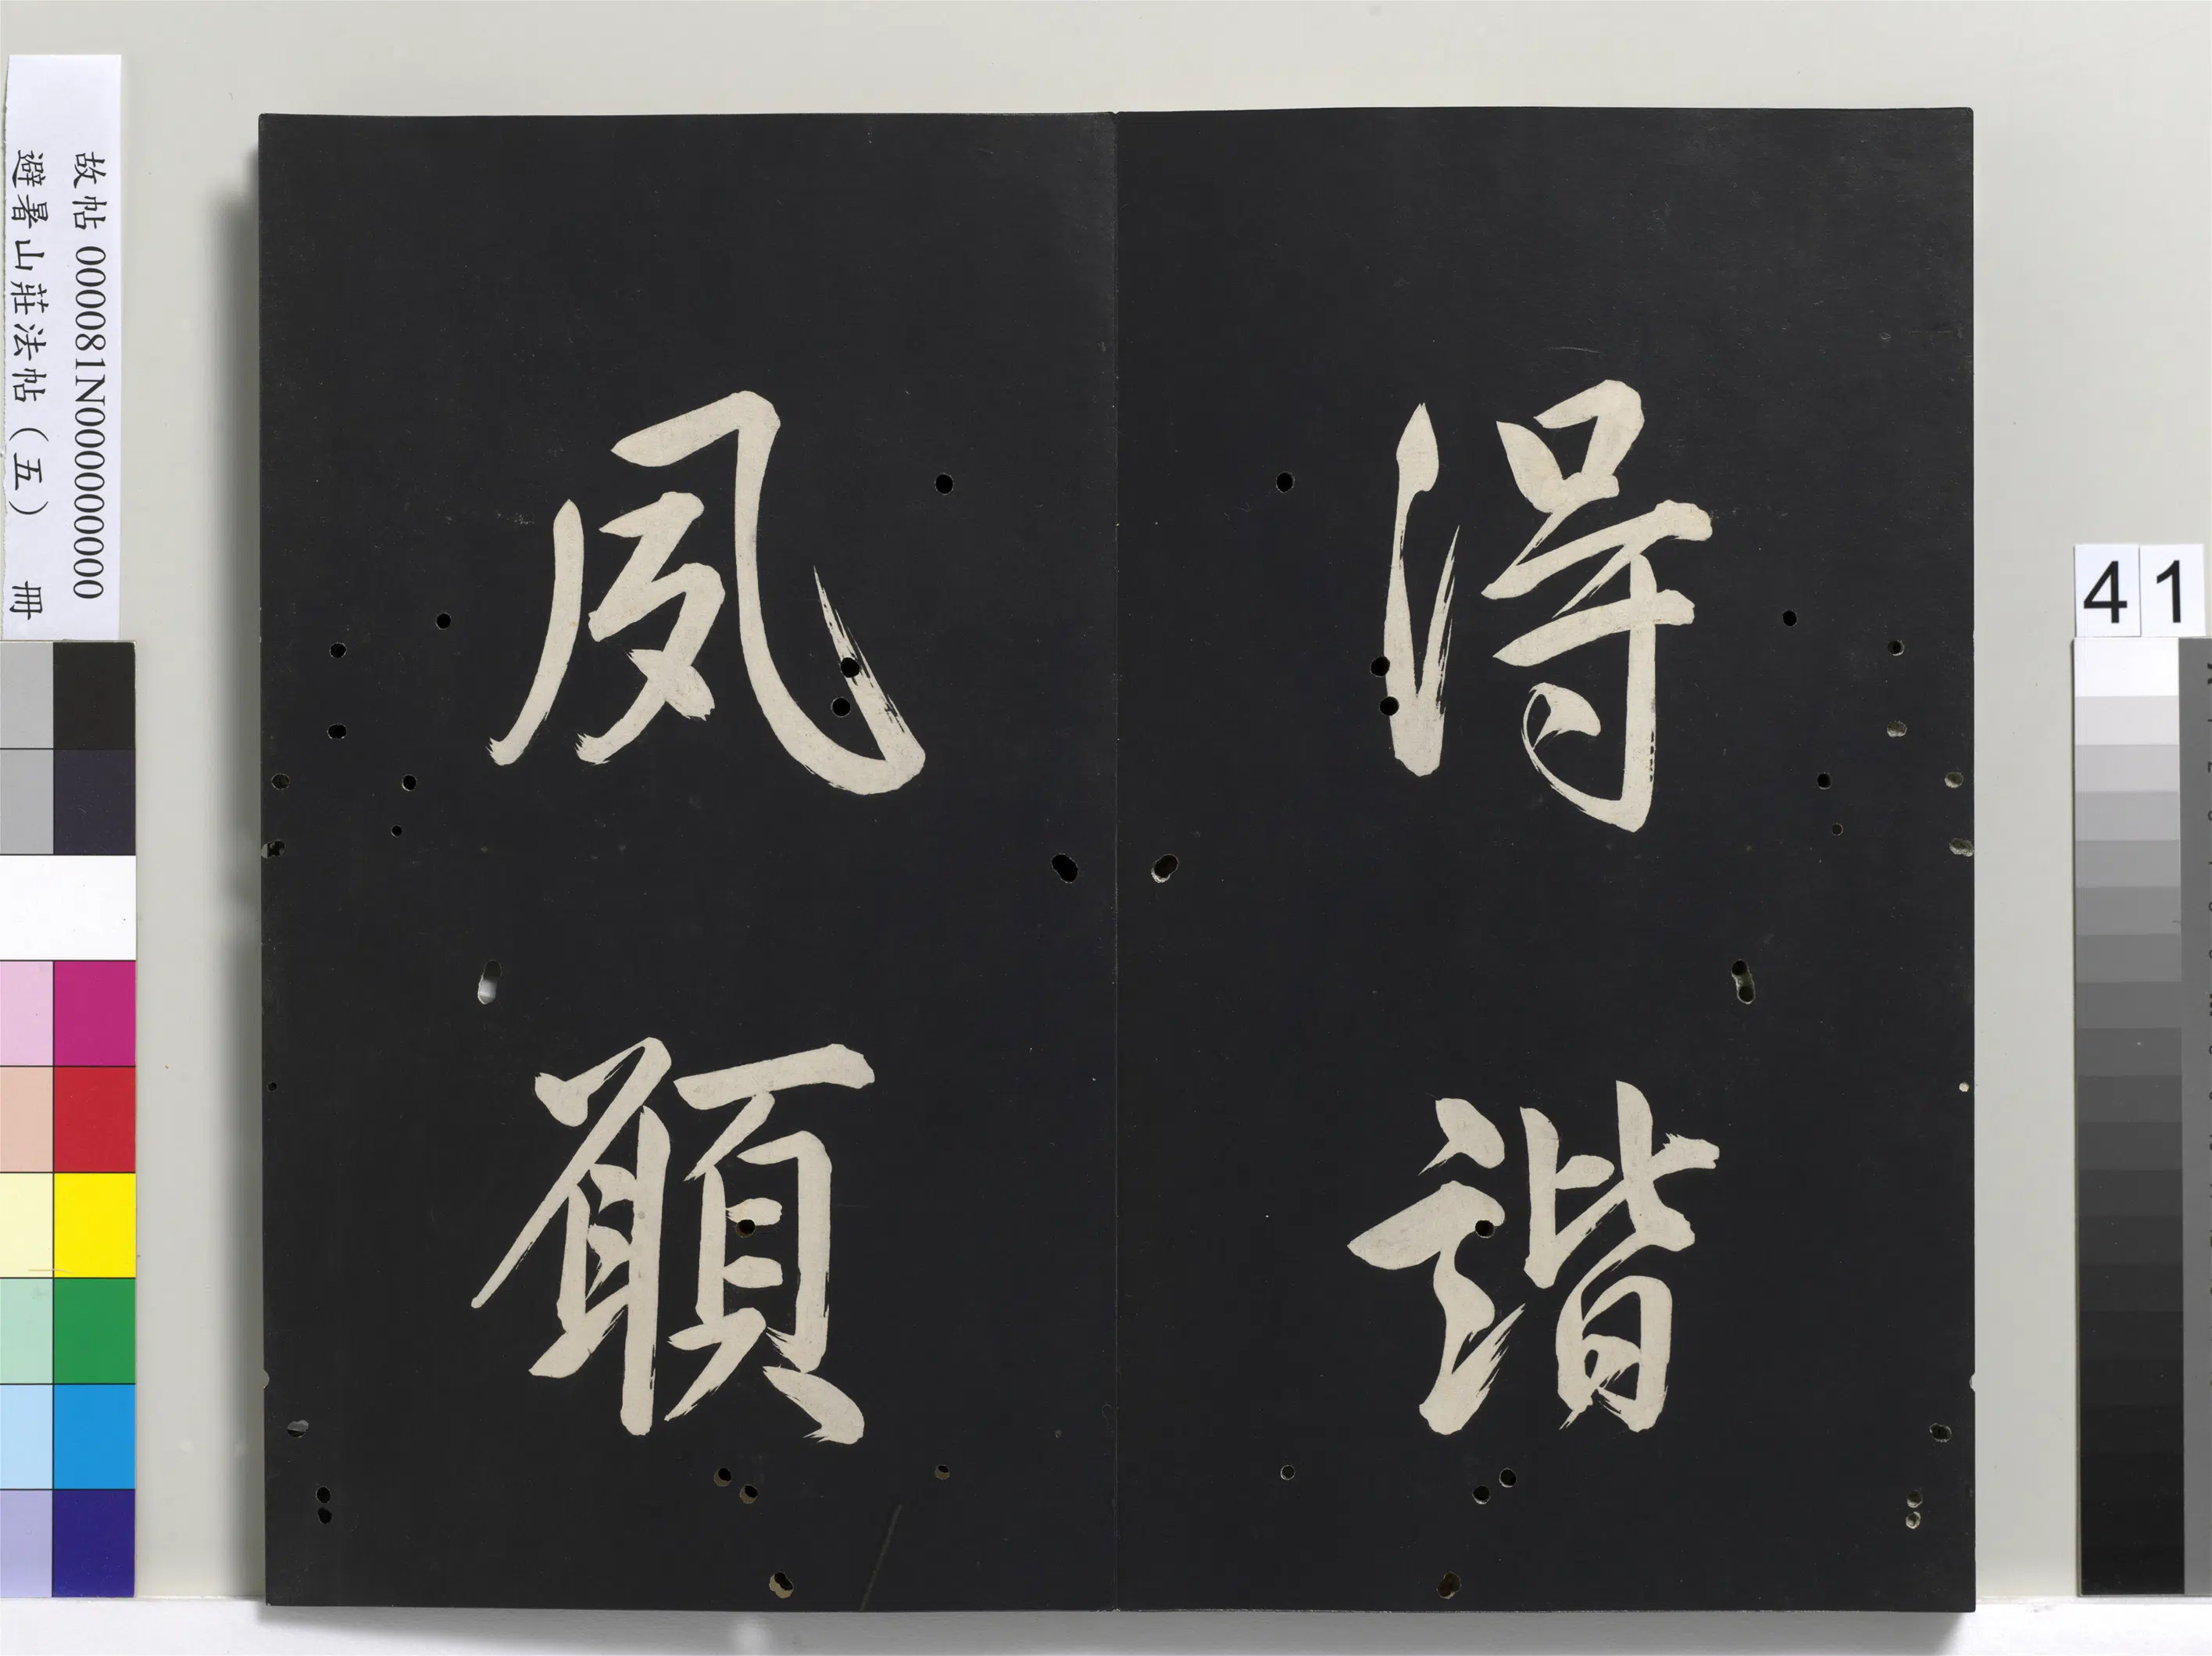 得諧
夙願
故帖 000081N000000000
避暑山莊法帖（五） 冊
41